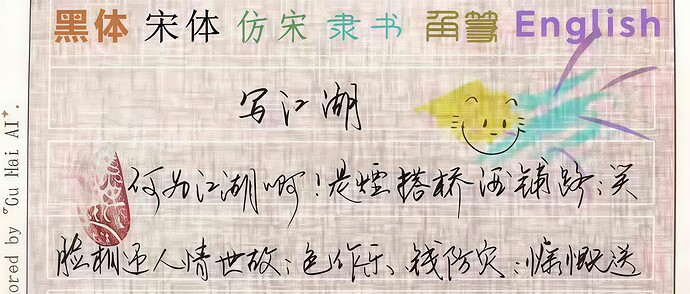 黑体 宋体 仿宋 隶书 角篆 English
写江湖
何为江湖啊！是煙搭桥酒铺路；笑
脸相迎人情世故；色作乐、钱防灾；慷慨送
ored by "Gu Hai AI".